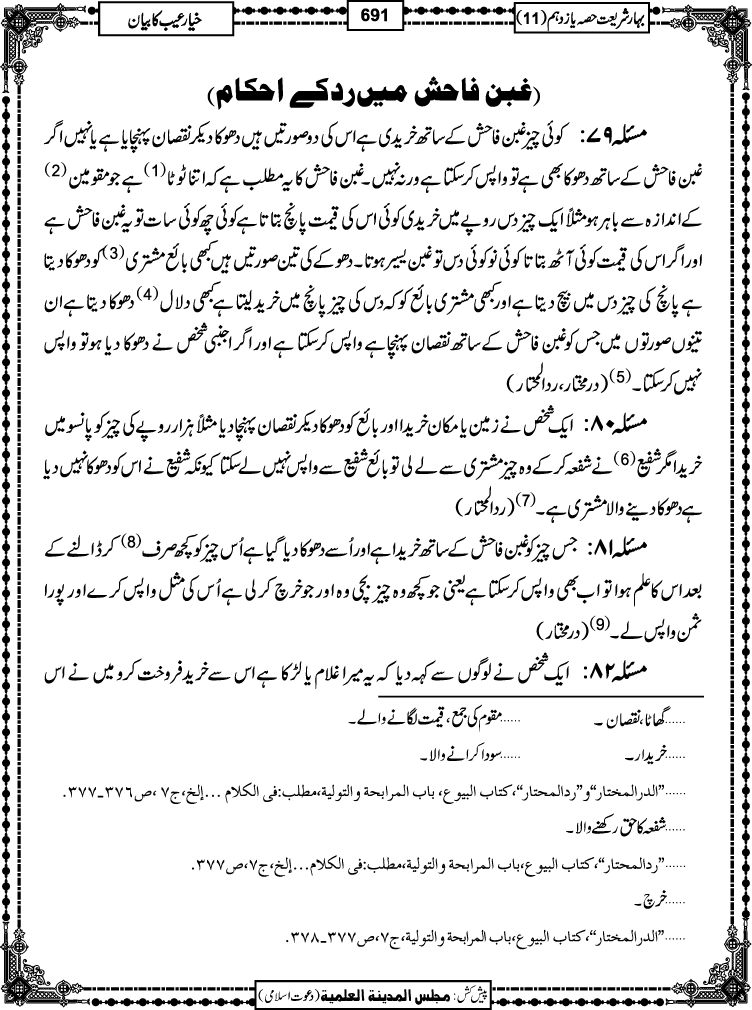 بہار شریعت حصہ یازدہم (11)
691
خیار عیب کا بیان
(غبن فاحش میں رد کے احکام)
مسئلہ ۷۹: کوئی چیز غبن فاحش کے ساتھ خریدی ہے اس کی دو صورتیں ہیں دھوکا دیکر نقصان پہنچایا ہے یا نہیں اگر
غبن فاحش کے ساتھ دھوکا بھی ہے تو واپس کرسکتا ہے ورنہ نہیں۔ غبن فاحش کا یہ مطلب ہے کہ اتنا ٹوٹا (1) ہے جو مقومین (2)
کے اندازہ سے باہر ہو مثلاً ایک چیز دس روپے میں خریدی کوئی اس کی قیمت پانچ بتاتا ہے کوئی چھ کوئی سات تو یہ غبن فاحش ہے
اور اگر اس کی قیمت کوئی آٹھ بتاتا کوئی نو کوئی دس تو غبن یسیر ہوتا۔ دھوکے کی تین صورتیں ہیں کبھی بائع مشتری (3) کو دھوکا دیتا
ہے پانچ کی چیز دس میں بیچ دیتا ہے اور کبھی مشتری بائع کو کہ دس کی چیز پانچ میں خرید لیتا ہے کبھی دلال (4) دھوکا دیتا ہے ان
تینوں صورتوں میں جس کو غبن فاحش کے ساتھ نقصان پہنچا ہے واپس کرسکتا ہے اور اگر اجنبی شخص نے دھوکا دیا ہو تو واپس
نہیں کرسکتا۔ (5) (درمختار، ردالمحتار)
مسئلہ ۸۰: ایک شخص نے زمین یا مکان خریدا اور بائع کو دھوکا دیکر نقصان پہنچا دیا مثلاً ہزار روپے کی چیز کو پانسو میں
خریدا مگر شفیع (6) نے شفعہ کرکے وہ چیز مشتری سے لے لی تو بائع شفیع سے واپس نہیں لے سکتا کیونکہ شفیع نے اس کو دھوکا نہیں دیا
ہے دھوکا دینے والا مشتری ہے۔ (7) (ردالمحتار)
مسئلہ ۸۱: جس چیز کو غبن فاحش کے ساتھ خریدا ہے اور اُسے دھوکا دیا گیا ہے اُس چیز کو کچھ صرف (8) کر ڈالنے کے
بعد اس کا علم ہوا تو اب بھی واپس کرسکتا ہے یعنی جو کچھ وہ چیز بچی وہ اور جو خرچ کر لی ہے اُس کی مثل واپس کرے اور پورا
ثمن واپس لے۔ (9) (درمختار)
مسئلہ ۸۲: ایک شخص نے لوگوں سے کہہ دیا کہ یہ میرا غلام یا لڑکا ہے اس سے خرید فروخت کرو میں نے اس
......گھاٹا، نقصان۔ ......مقوم کی جمع، قیمت لگانے والے۔
......خریدار۔ ......سودا کرانے والا۔
......”الدرالمختار“و”ردالمحتار“،کتاب البیوع، باب المرابحة والتولیة،مطلب:فی الکلام ...إلخ،ج۷ ،ص۳۷۶۔۳۷۷.
......شفعہ کا حق رکھنے والا۔
......”ردالمحتار“، کتاب البیوع،باب المرابحة والتولیة،مطلب:فی الکلام...إلخ،ج۷،ص۳۷۷.
......خرچ۔
......”الدرالمختار“، کتاب البیوع،باب المرابحة والتولیة،ج۷،ص۳۷۷۔۳۷۸.
پیش کش: مجلس المدینة العلمیة (دعوت اسلامی)